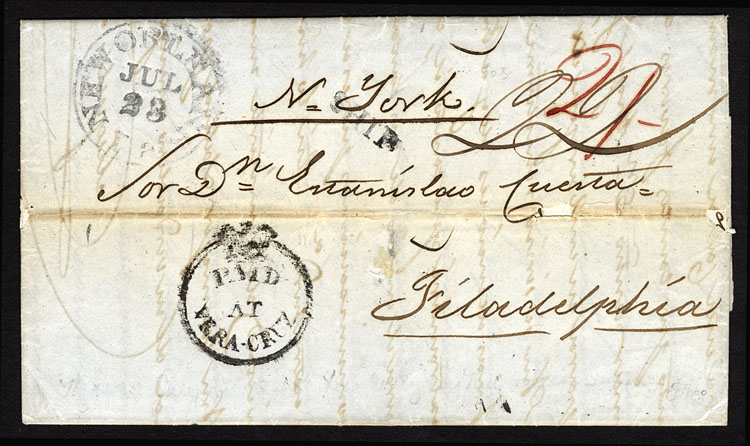 NEW ORLEANS
JUL
23
La
Nª York.
SHIP
2/-
Sor Dⁿ Estanislao Cuesta
PAID
AT
VERA-CRUZ
Filadelphia